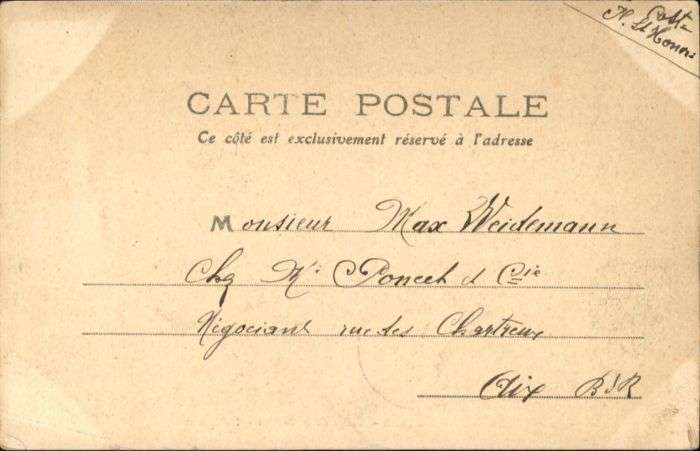 Cotte
H. St Honoré
CARTE POSTALE
Ce côté est exclusivement réservé à l'adresse
Monsieur Max Weidemann
Chez Mr Poncet & Cie
Négociant rue des Chartreux
Aix B d R